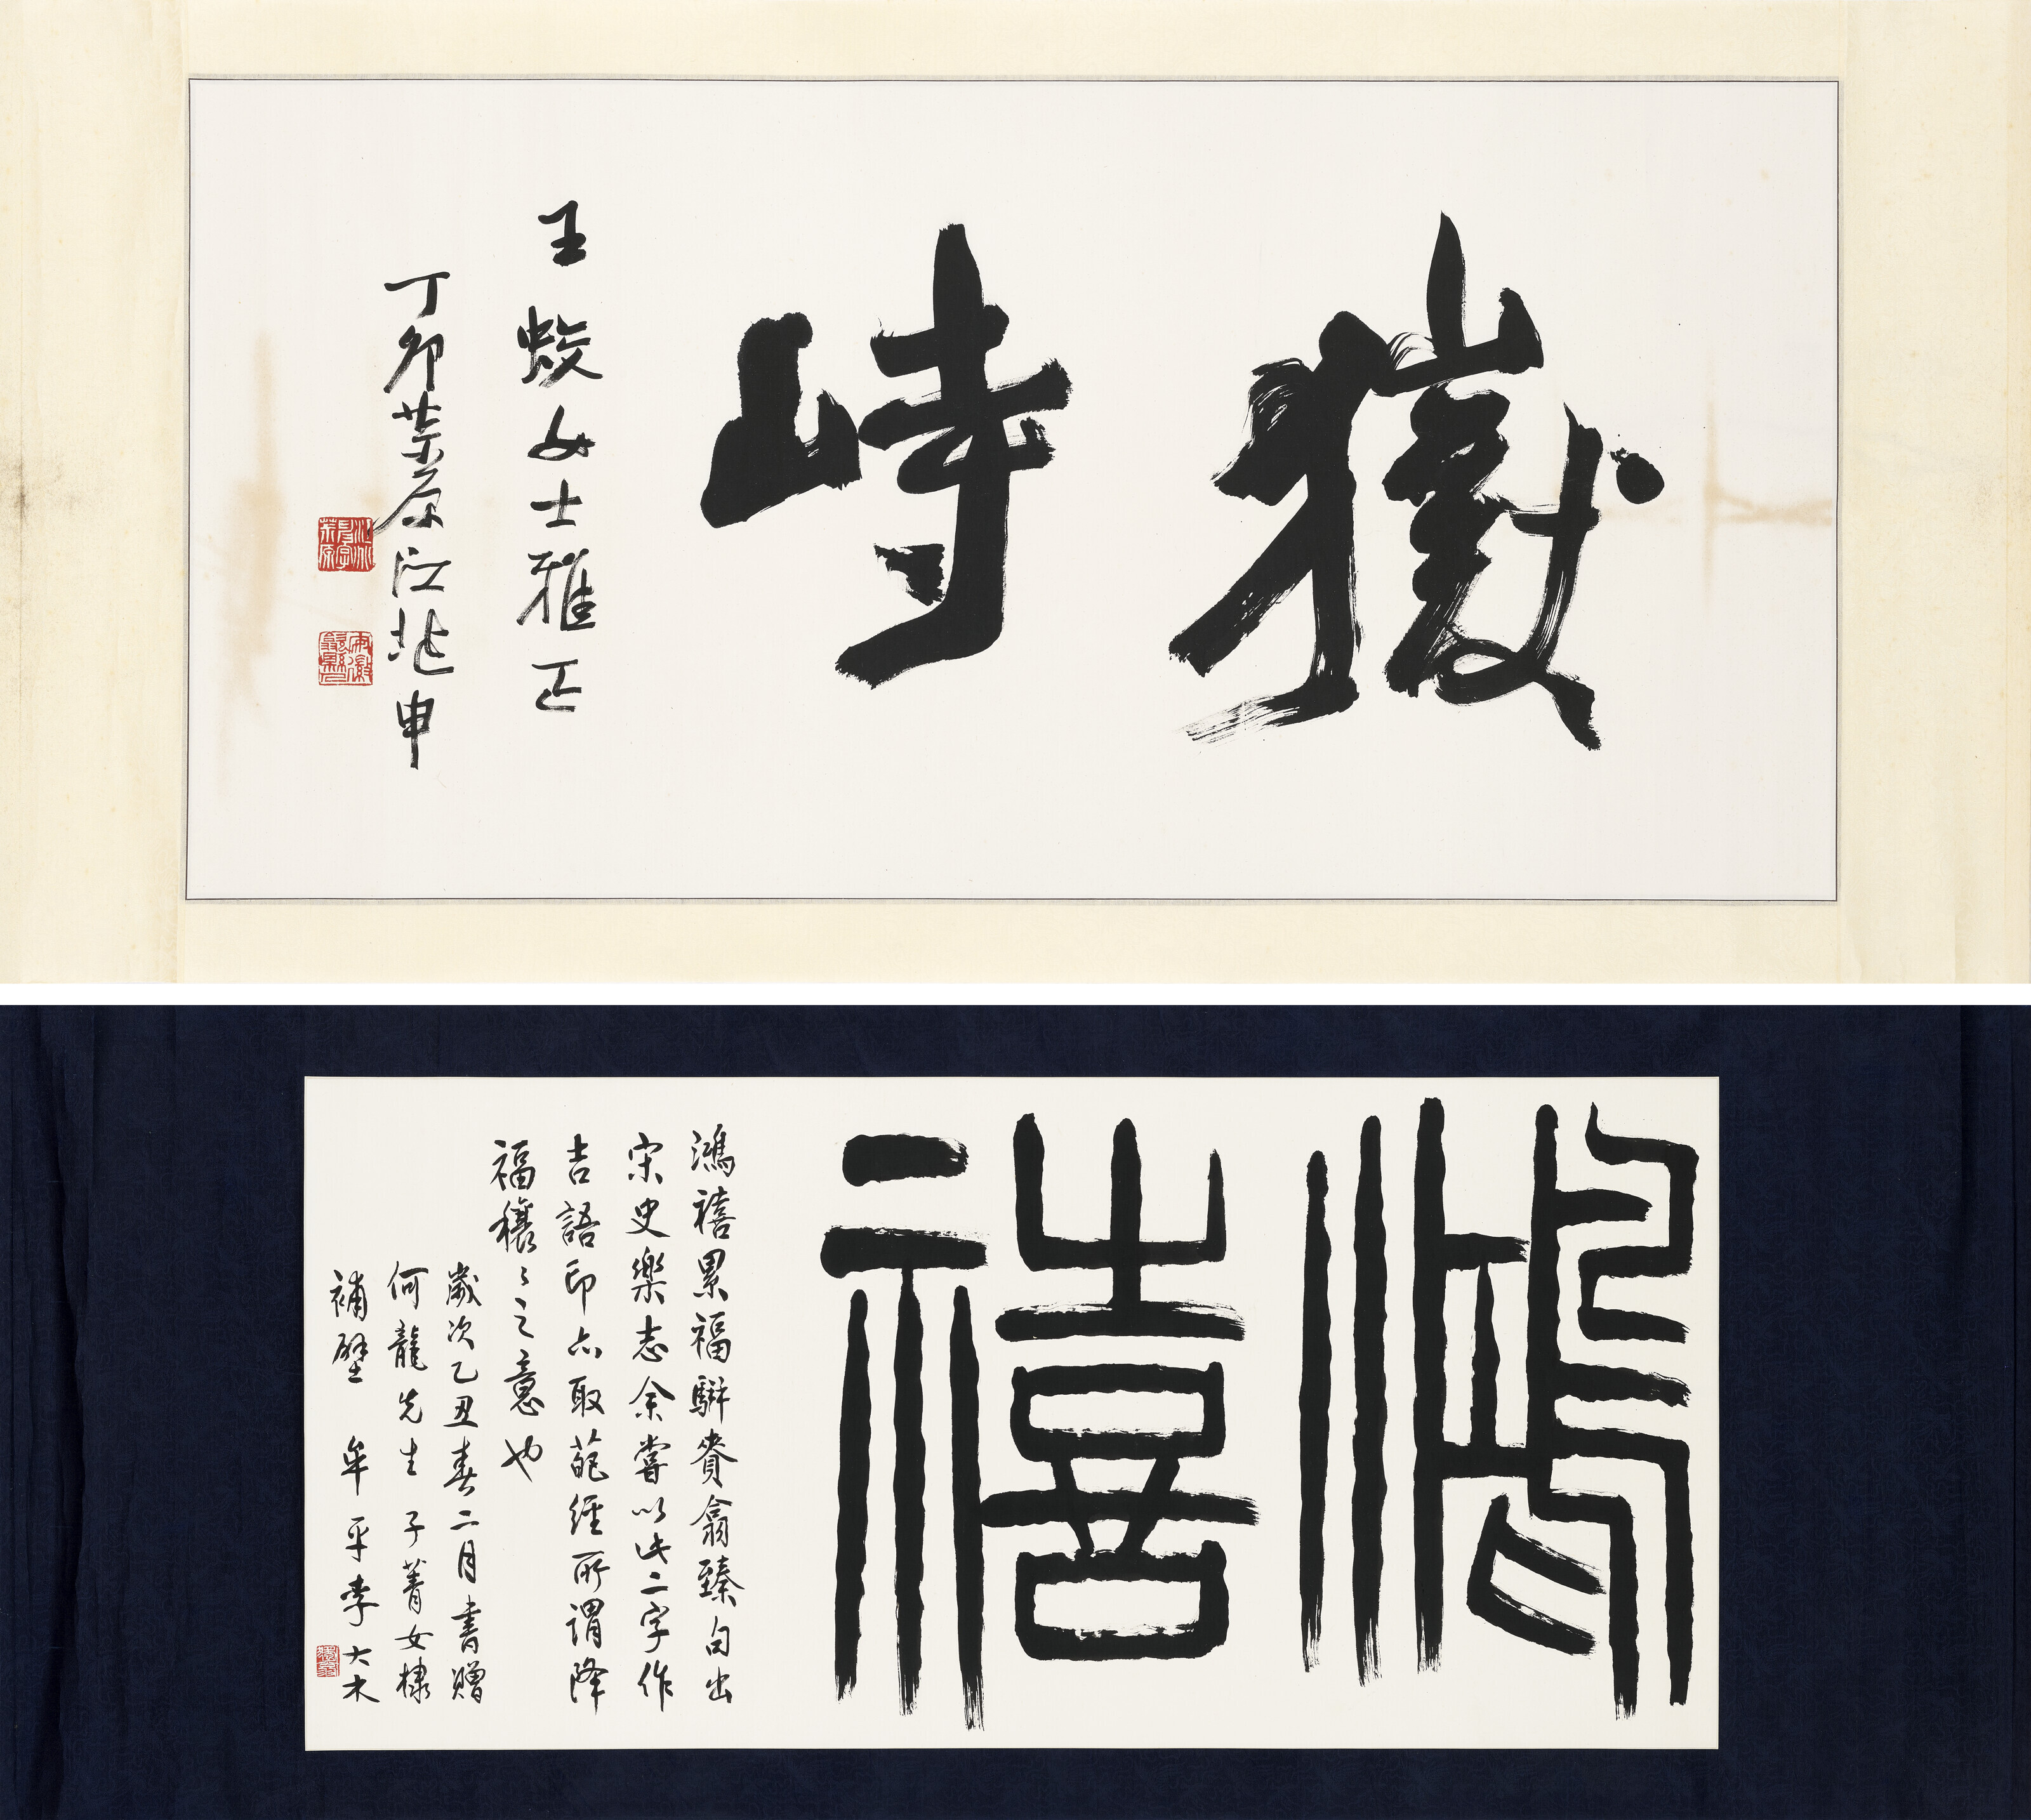 嶽峙
王蛟女士雅正
丁卯茮原江兆申
鴻禧
鴻禧累福駢賚翕臻句出
宋史樂志余嘗以此二字作
吉語印亦取葩經所謂降
福穰〻之意也
歲次乙丑春二月書贈
何龍先生 子菁女棣
補壁 牟平李大木